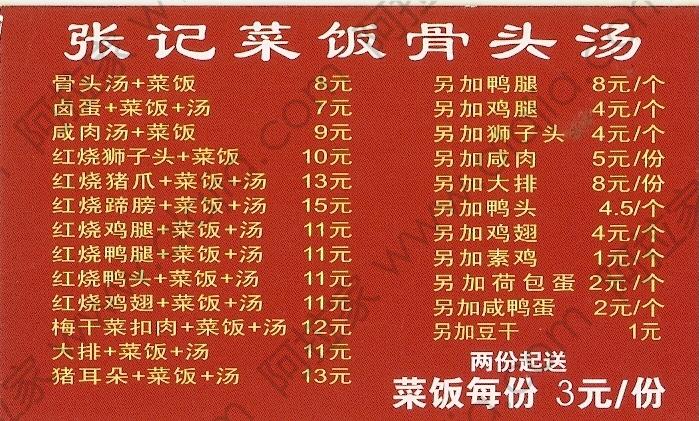 张记菜饭骨头汤
骨头汤+菜饭 8元
卤蛋+菜饭+汤 7元
咸肉汤+菜饭 9元
红烧狮子头+菜饭 10元
红烧猪爪+菜饭+汤 13元
红烧蹄膀+菜饭+汤 15元
红烧鸡腿+菜饭+汤 11元
红烧鸭腿+菜饭+汤 11元
红烧鸭头+菜饭+汤 11元
红烧鸡翅+菜饭+汤 11元
梅干菜扣肉+菜饭+汤 12元
大排+菜饭+汤 11元
猪耳朵+菜饭+汤 13元
另加鸭腿 8元/个
另加鸡腿 4元/个
另加狮子头 4元/个
另加咸肉 5元/份
另加大排 8元/份
另加鸭头 4.5/个
另加鸡翅 4元/个
另加素鸡 1元/个
另加荷包蛋 2元/个
另加咸鸭蛋 2元/个
另加豆干 1元
两份起送
菜饭每份 3元/份